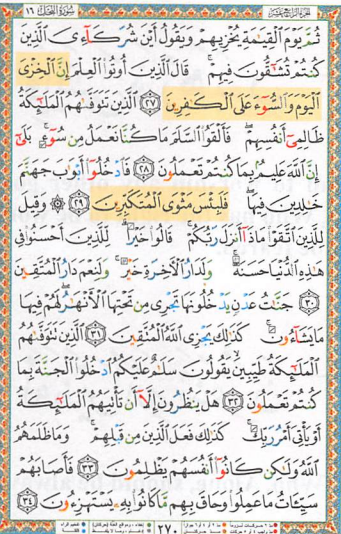 الجزء الرابع عشر سورة النحل ١٦
ثُمَّ يَوْمَ ٱلْقِيَٰمَةِ يُخْزِيهِمْ وَيَقُولُ أَيْنَ شُرَكَآءِىَ ٱلَّذِينَ
كُنتُمْ تُشَٰٓقُّونَ فِيهِمْ ۚ قَالَ ٱلَّذِينَ أُوتُوا۟ ٱلْعِلْمَ إِنَّ ٱلْخِزْىَ
ٱلْيَوْمَ وَٱلسُّوٓءَ عَلَى ٱلْكَٰفِرِينَ ٢٧ ٱلَّذِينَ تَتَوَفَّىٰهُمُ ٱلْمَلَٰٓئِكَةُ
ظَالِمِىٓ أَنفُسِهِمْ ۖ فَأَلْقَوُا۟ ٱلسَّلَمَ مَا كُنَّا نَعْمَلُ مِن سُوٓءٍۭ ۚ بَلَىٰٓ
إِنَّ ٱللَّهَ عَلِيمٌۢ بِمَا كُنتُمْ تَعْمَلُونَ ٢٨ فَٱدْخُلُوٓا۟ أَبْوَٰبَ جَهَنَّمَ
خَٰلِدِينَ فِيهَا ۖ فَلَبِئْسَ مَثْوَى ٱلْمُتَكَبِّرِينَ ٢٩ ۞ وَقِيلَ
لِلَّذِينَ ٱتَّقَوْا۟ مَاذَآ أَنزَلَ رَبُّكُمْ ۚ قَالُوا۟ خَيْرًا ۗ لِّلَّذِينَ أَحْسَنُوا۟ فِى
هَٰذِهِ ٱلدُّنْيَا حَسَنَةٌ ۚ وَلَدَارُ ٱلْءَاخِرَةِ خَيْرٌ ۚ وَلَنِعْمَ دَارُ ٱلْمُتَّقِينَ
٣٠ جَنَّٰتُ عَدْنٍ يَدْخُلُونَهَا تَجْرِى مِن تَحْتِهَا ٱلْأَنْهَٰرُ ۖ لَهُمْ فِيهَا
مَا يَشَآءُونَ ۚ كَذَٰلِكَ يَجْزِى ٱللَّهُ ٱلْمُتَّقِينَ ٣١ ٱلَّذِينَ تَتَوَفَّىٰهُمُ
ٱلْمَلَٰٓئِكَةُ طَيِّبِينَ ۙ يَقُولُونَ سَلَٰمٌ عَلَيْكُمُ ٱدْخُلُوا۟ ٱلْجَنَّةَ بِمَا
كُنتُمْ تَعْمَلُونَ ٣٢ هَلْ يَنظُرُونَ إِلَّآ أَن تَأْتِيَهُمُ ٱلْمَلَٰٓئِكَةُ
أَوْ يَأْتِىَ أَمْرُ رَبِّكَ ۚ كَذَٰلِكَ فَعَلَ ٱلَّذِينَ مِن قَبْلِهِمْ ۚ وَمَا ظَلَمَهُمُ
ٱللَّهُ وَلَٰكِن كَانُوٓا۟ أَنفُسَهُمْ يَظْلِمُونَ ٣٣ فَأَصَابَهُمْ
سَيِّـَٔاتُ مَا عَمِلُوا۟ وَحَاقَ بِهِم مَّا كَانُوا۟ بِهِۦ يَسْتَهْزِءُونَ ٣٤
٢٧٠